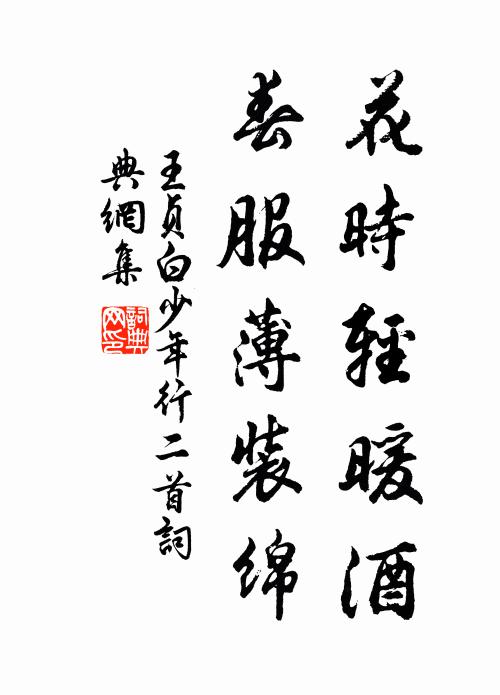 花時輕暖酒
春服薄裝綿
王貞白少年行二首詞
典網集
詞典
网印